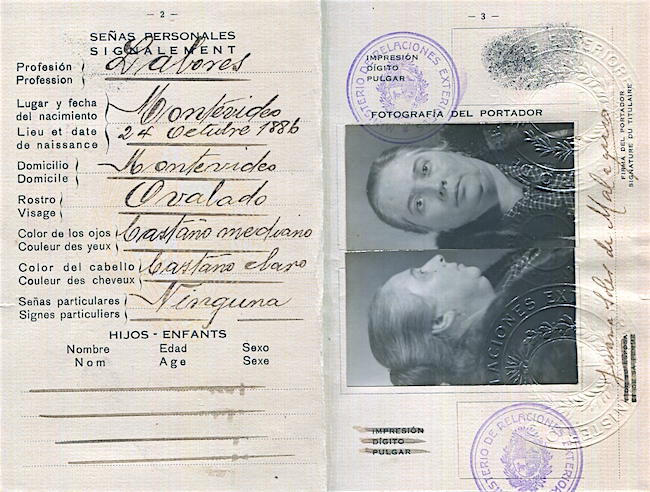 — 2 —
SEÑAS PERSONALES
SIGNALEMENT
Profesión
Profession
Labores
Lugar y fecha
del nacimiento
Lieu et date
de naissance
Montevideo
24 Octubre 1886
Domicilio
Domicile
Montevideo
Rostro
Visage
Ovalado
Color de los ojos
Couleur des yeux
Castaño mediano
Color del cabello
Couleur des cheveux
Castaño claro
Señas particulares
Signes particuliers
Ninguna
HIJOS - ENFANTS
Nombre Edad Sexo
Nom Age Sexe
— 3 —
IMPRESIÓN
DÍGITO
PULGAR
MINISTERIO DE RELACIONES EXTERIORES
FOTOGRAFÍA DEL PORTADOR
FIRMA DEL PORTADOR
SIGNATURE DU TITULAIRE
Juana de
IMPRESIÓN
DÍGITO
PULGAR
MINISTERIO DE RELACIONES EXTERIORES